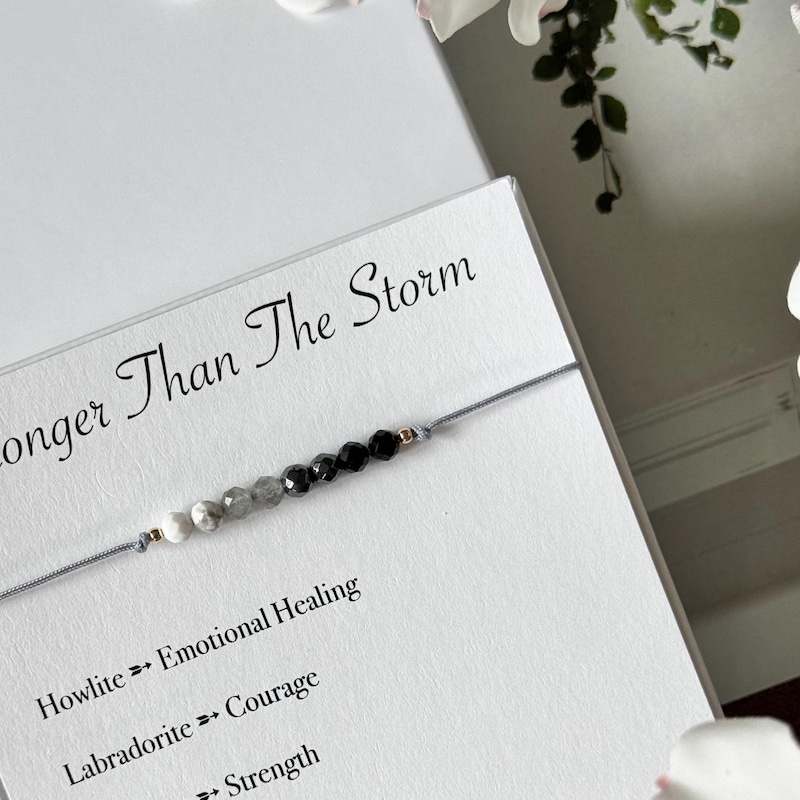 onger Than The Storm
Howlite ➵ Emotional Healing
Labradorite ➵ Courage
➵ Strength